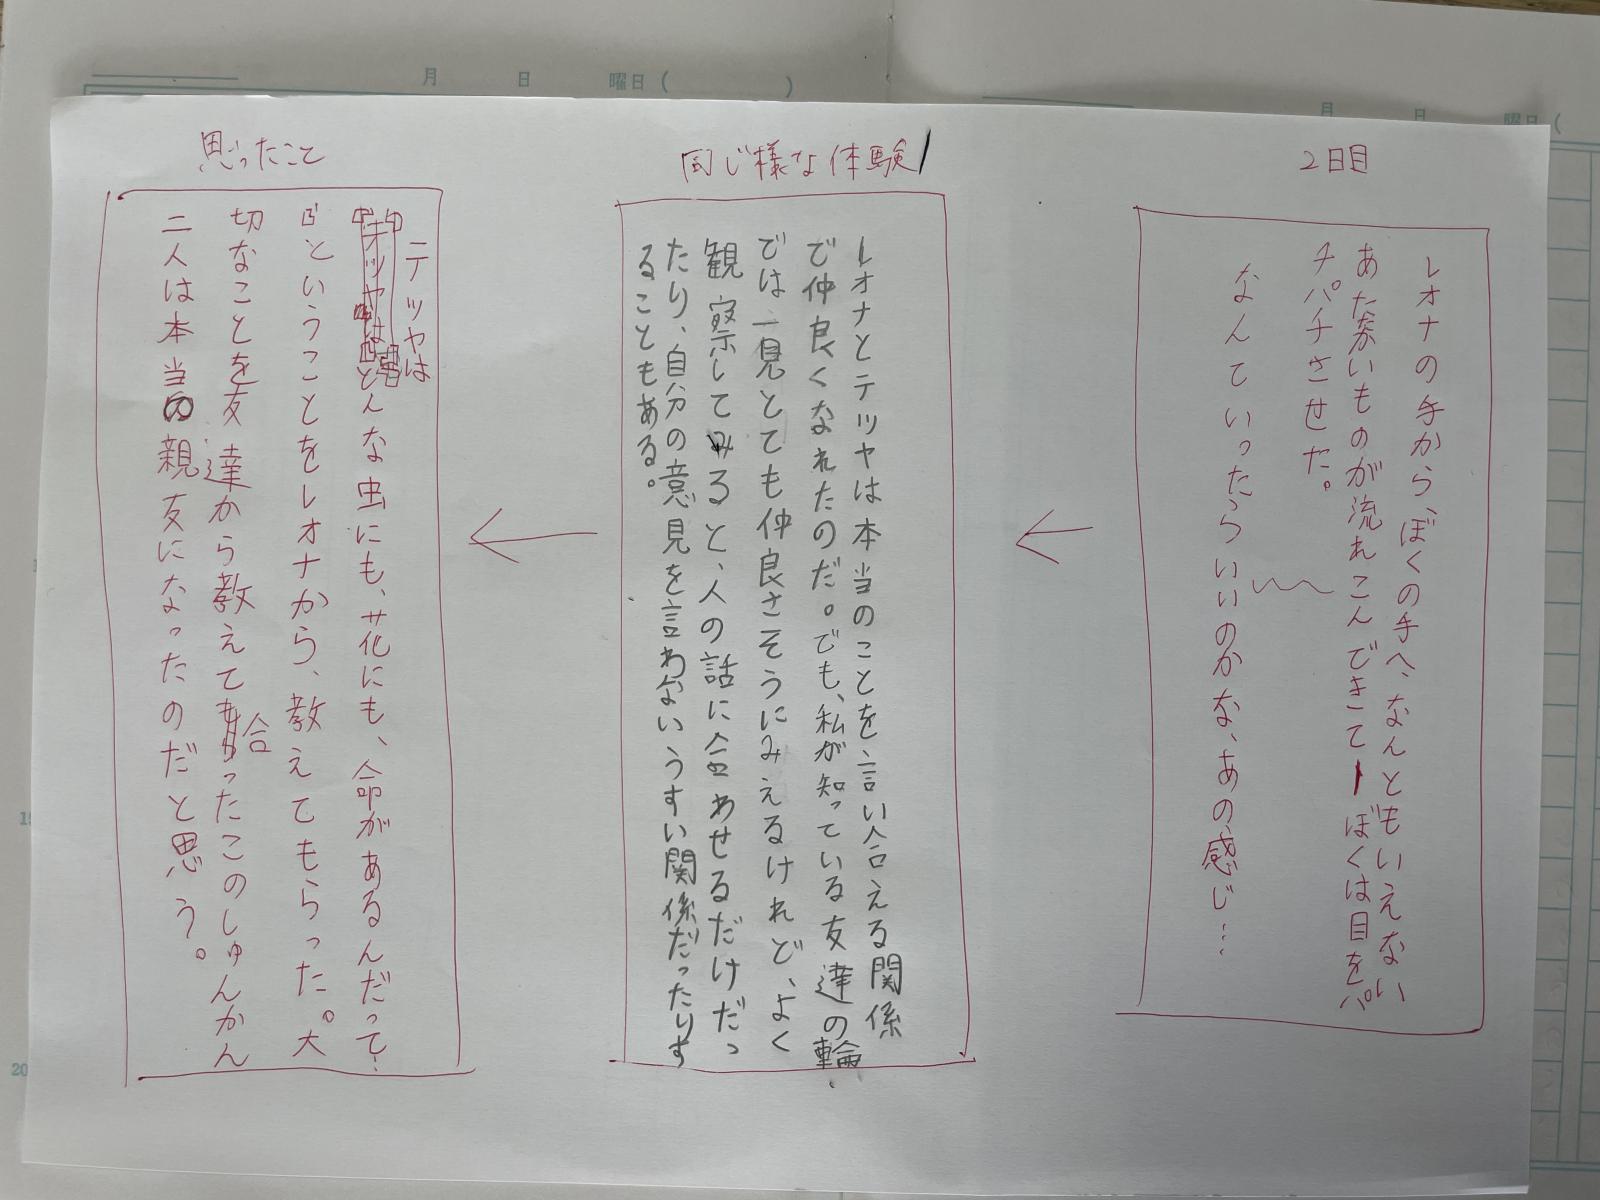 月 日 曜日（ ）
月 日 曜日（
2日目
レオナの手から、ぼくの手へ、なんともいえない
あたたかいものが流れこんできてぼくは目をパ
チパチさせた。
なんていったらいいのかな、あの感じ…
同じ様な体験
レオナとテツヤは本当のことを言い合える関係
で仲良くなれたのだ。でも、私が知っている友達の輪
では一見とても仲良さそうにみえるけれど、よく
観察してみると、人の話に合わせるだけだっ
たり、自分の意見を言わないうすい関係だったりす
ることもある。
思ったこと
テツヤは
どんな虫にも、花にも、命があるんだって
ということをレオナから、教えてもらった。大
切なことを友達から教えても合ったこのしゅんかん
二人は本当の親友になったのだと思う。
20